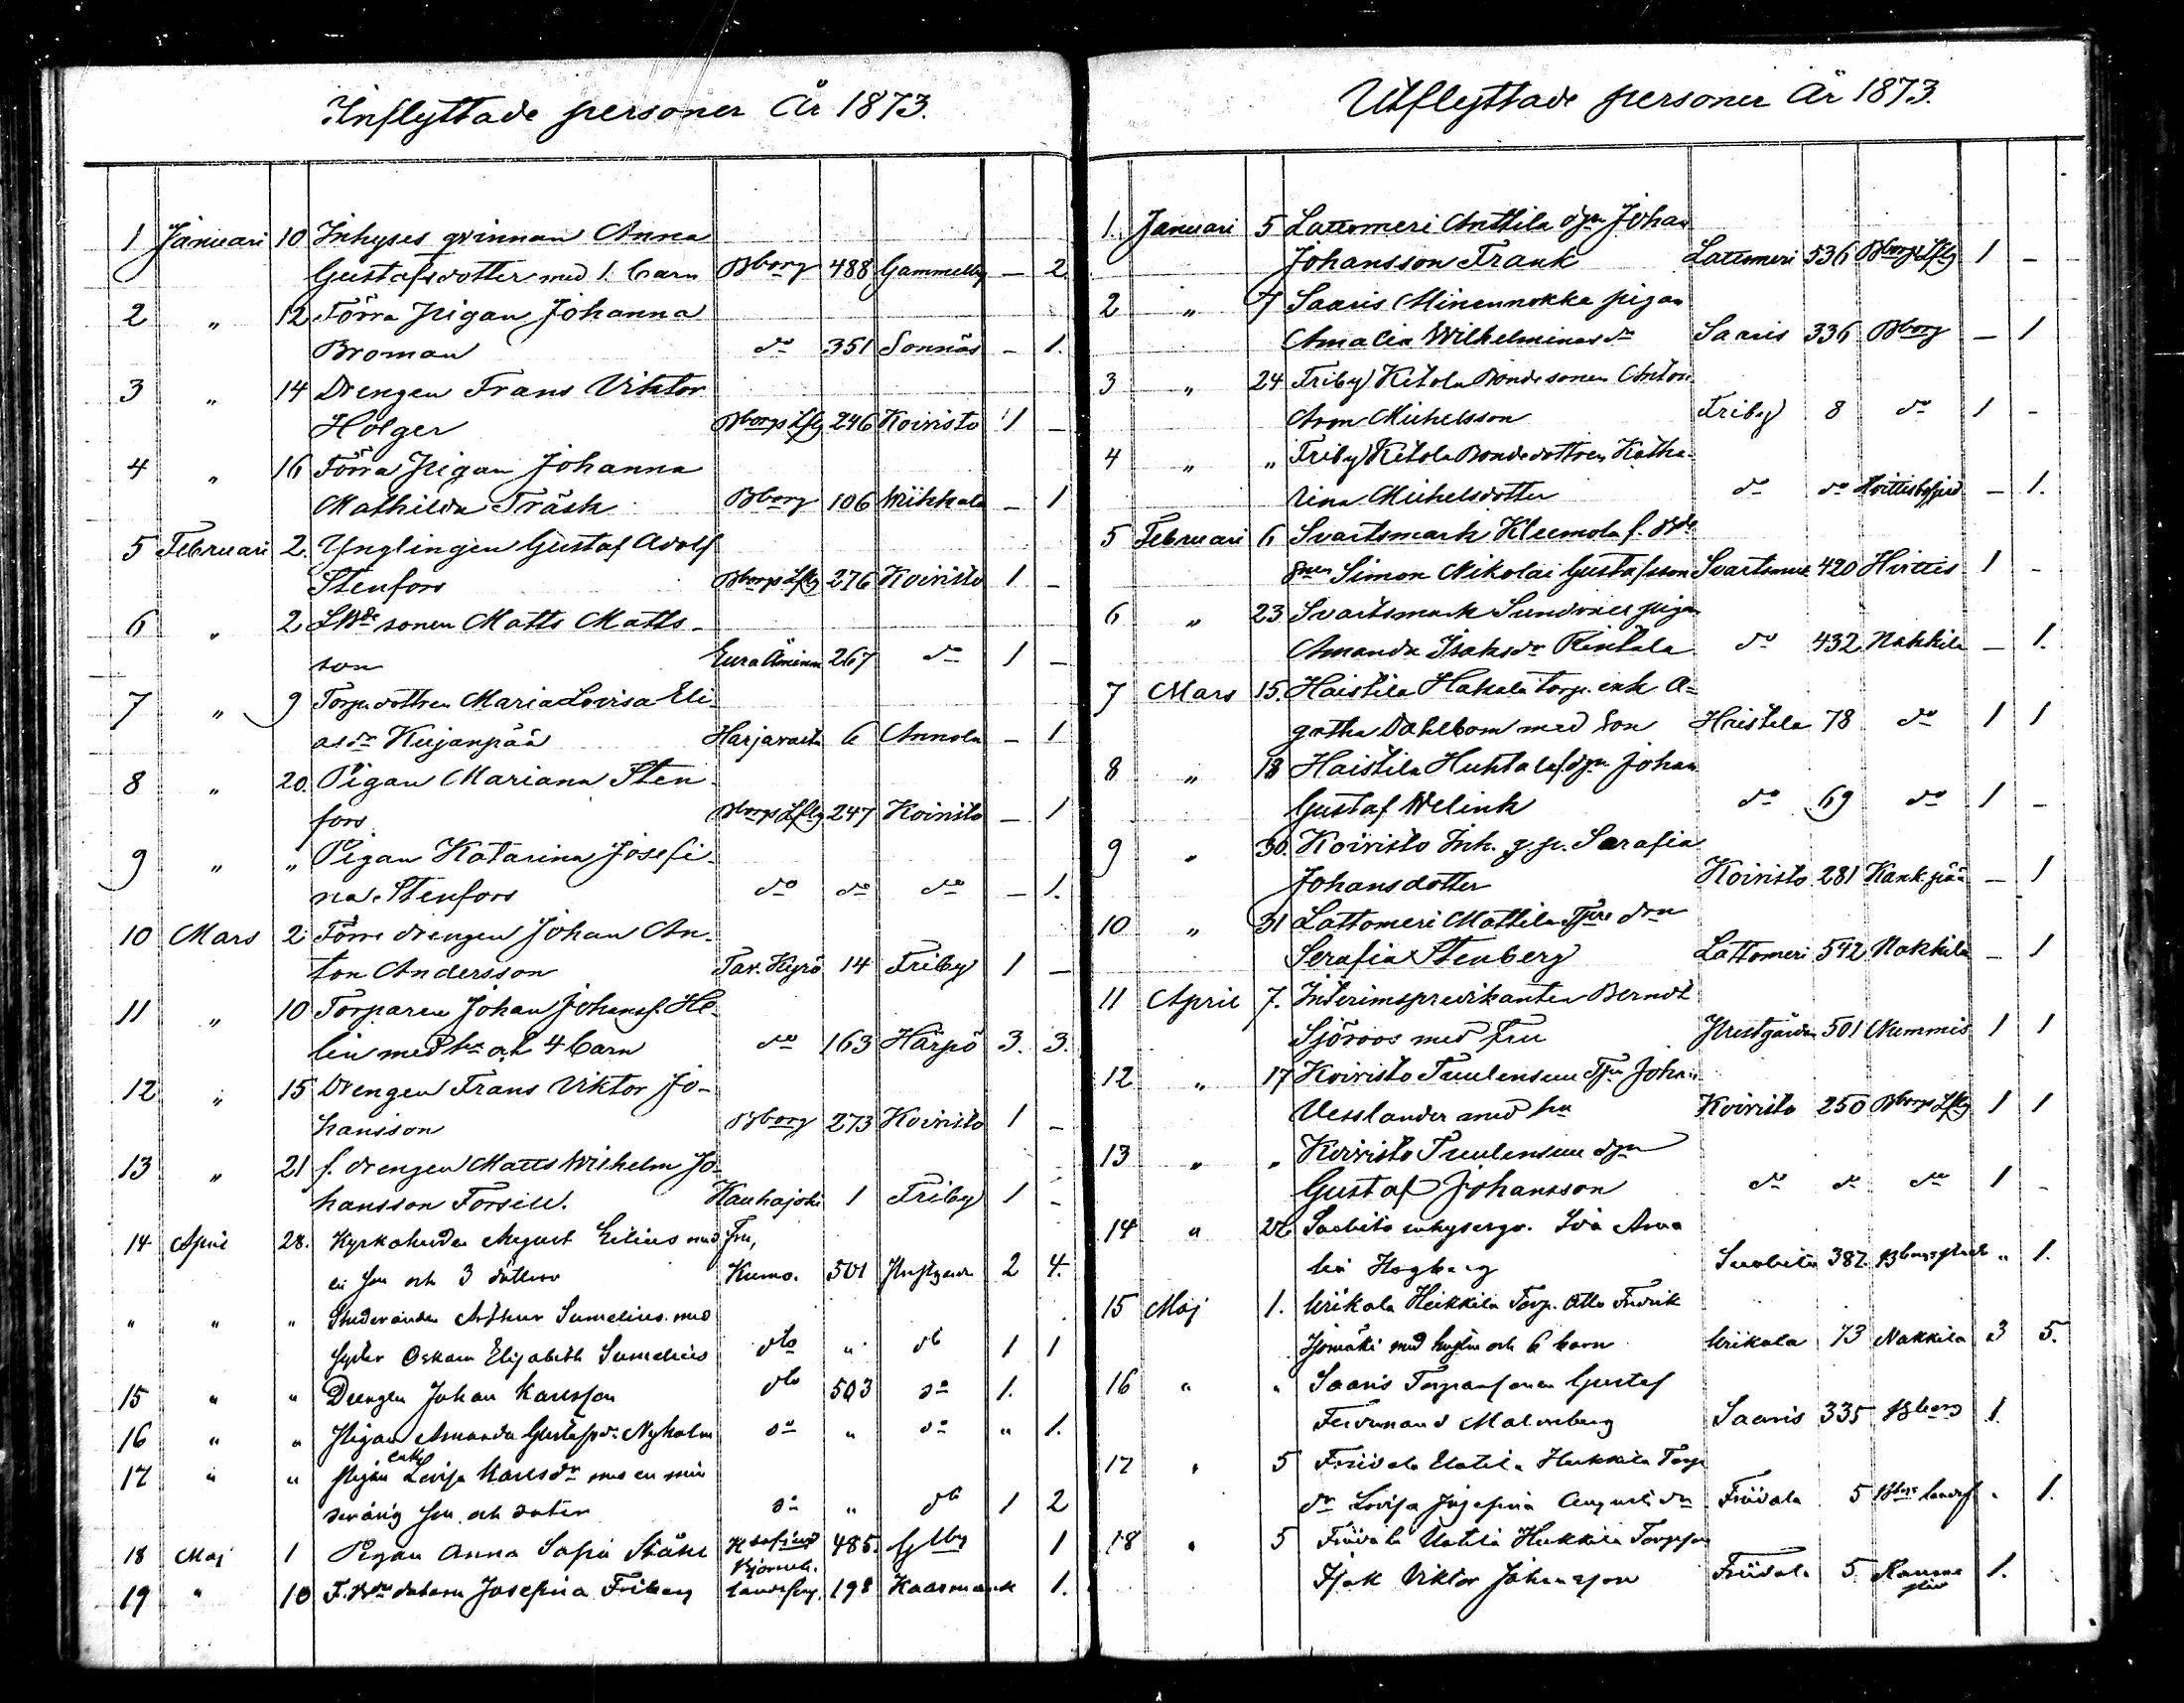 Inflyttade personer År 1873.
1 Januari 10 Inhyses qvinnan Anna
Gustafsdotter med 1. barn Bborg 488 Gammelby — 2
2 " 12 Förra pigan Johanna
Broman do 351 Sonnäs — 1.
3 " 14 Drengen Frans Viktor
Holger Bborgs Lfg 246 Koivisto 1 —
4 " 16 Förra pigan Johanna
Mathilda Träsk Bborg 106 — 1
5 Februari 2. Ynglingen Gustaf Adolf
Stenfors Bborgs Lfg 276 Koivisto 1 —
6 " 2 sonen Matts Matts-
son Eura Åminne 267 do 1 —
7 " 9 Torpardottren Maria Lovisa Eli-
asdr Kujanpää Harjavalta 6 Annola — 1
8 " 20. Pigan Mariana Sten-
fors Bborgs Lfg 247 Koivisto — 1
9 " " Pigan Katarina Josefi-
na Stenfors do do do — 1.
10 Mars 2 Förre drengen Johan An-
ton Andersson Tav. Kyrö 14 Friby 1 —
11 " 10 Torparen Johan Johanss. He-
lin med hu och 4 barn do 163 Härpö 3. 3.
12 " 15 Drengen Frans Viktor Jo-
hansson Bborg 273 Koivisto 1 —
13 " 21 f. drengen Matts Wilhelm Jo-
hansson Forsell. Kauhajoki 1 Friby 1 —
14 April 28. Kyrkoherden August Eilius med fru,
en son och 3 döttrar Kumo. 501 Prestgården 2 4.
" " " Studeranden Arthur Sumelius med
syster Oskara Elisabeth Sumelius dto " do 1 1
15 " " Drengen Johan Karlsson dto 503 do 1.
16 " " Pigan Amanda Gustafsdr Nyholm do " do " 1.
17 " " Pigan Lovisa Karlsdr med en min
derårig son och dotter do " do 1 2
18 Maj 1 Pigan Anna Sofia Ståhl 485. Glby 1
19 " 10 F. Bde dottern Josefina Friberg Björneb. landsförs. 198 Kaasmark 1.
Utflyttade personer År 1873.
1. Januari 5 Lattomeri Anttila dgn Johan
Johansson Frank Lattomeri 536 Bborgs Lfg 1 —
2 " 7 Saaris Minennokka pigan
Amalia Wilhelminasdr Saaris 336 Bborg — 1
3 " 24 Friby Ketola Bondesonen Anton
Aron Michelsson Friby 8 do 1 —
4 " " Friby Ketola Bondedottren Katha-
rina Michelsdotter do do Hvittisbofjerd — 1.
5 Februari 6 Svartsmark Kleemola f. Bde
snen Simon Nikolai Gustafsson Svartsmark 420 Hvittis 1 —
6 " 23 Svartsmark Sundvall pigan
Amanda Isaksdr Rintala do 432 Nakkila — 1.
7 Mars 15. Haistila Hakala torp. enk A-
gatha Dahlbom med son Haistila 78 do 1 1
8 " 18 Haistila Huhtala dgn Johan
Gustaf Welink do 69 do 1 —
9 " 30. Koivisto Inh. q. p. Serafia
Johansdotter Koivisto 281 Kankpää — 1
10 " 31 Lattomeri Mattila Tpre drn
Serafia Stenberg Lattomeri 542 Nakkila — 1
11 April 7. Interimspredikanten Berndt
Sjöroos med fru Prestgården 501 Nummis 1 1
12 " 17 Koivisto Tuulensuu Tpn Johan
Vesslander med hu Koivisto 250 Bborgs Lfg 1 1
13 " " Koivisto Tuulensuu dgn
Gustaf Johansson do do do 1 —
14 " 26 inhysesqv. Eva Ama
lia Hogberg 382 " 1.
15 Maj 1. Wiikala Heikkilä Torp. Otto Fredrik
Isomäki med hustru och 6 barn Wiikala 73 Nakkila 3 5.
16 " " Saaris Torparsonen Gustaf
Ferdinand Malmberg Saaris 335 Bborg 1
17 " 5 Friidala Uotila Heikkilä Torp
dr Lovisa Josefina Augustidr Friidala 5 " 1.
18 " 5 Friidala Uotila Heikkilä Torpson
Isak Viktor Johansson Friidala 5 Raumo 1.